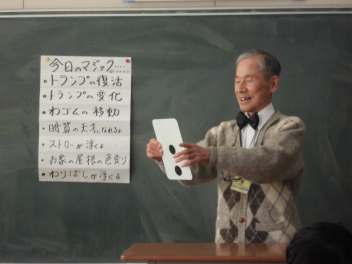 今日のマジック
・トランプの復活
・トランプの変化
・わゴムの移動
・暗算の天才になれる
・ストローが浮く
・お家の屋根の色変り
・わりばしが浮くる